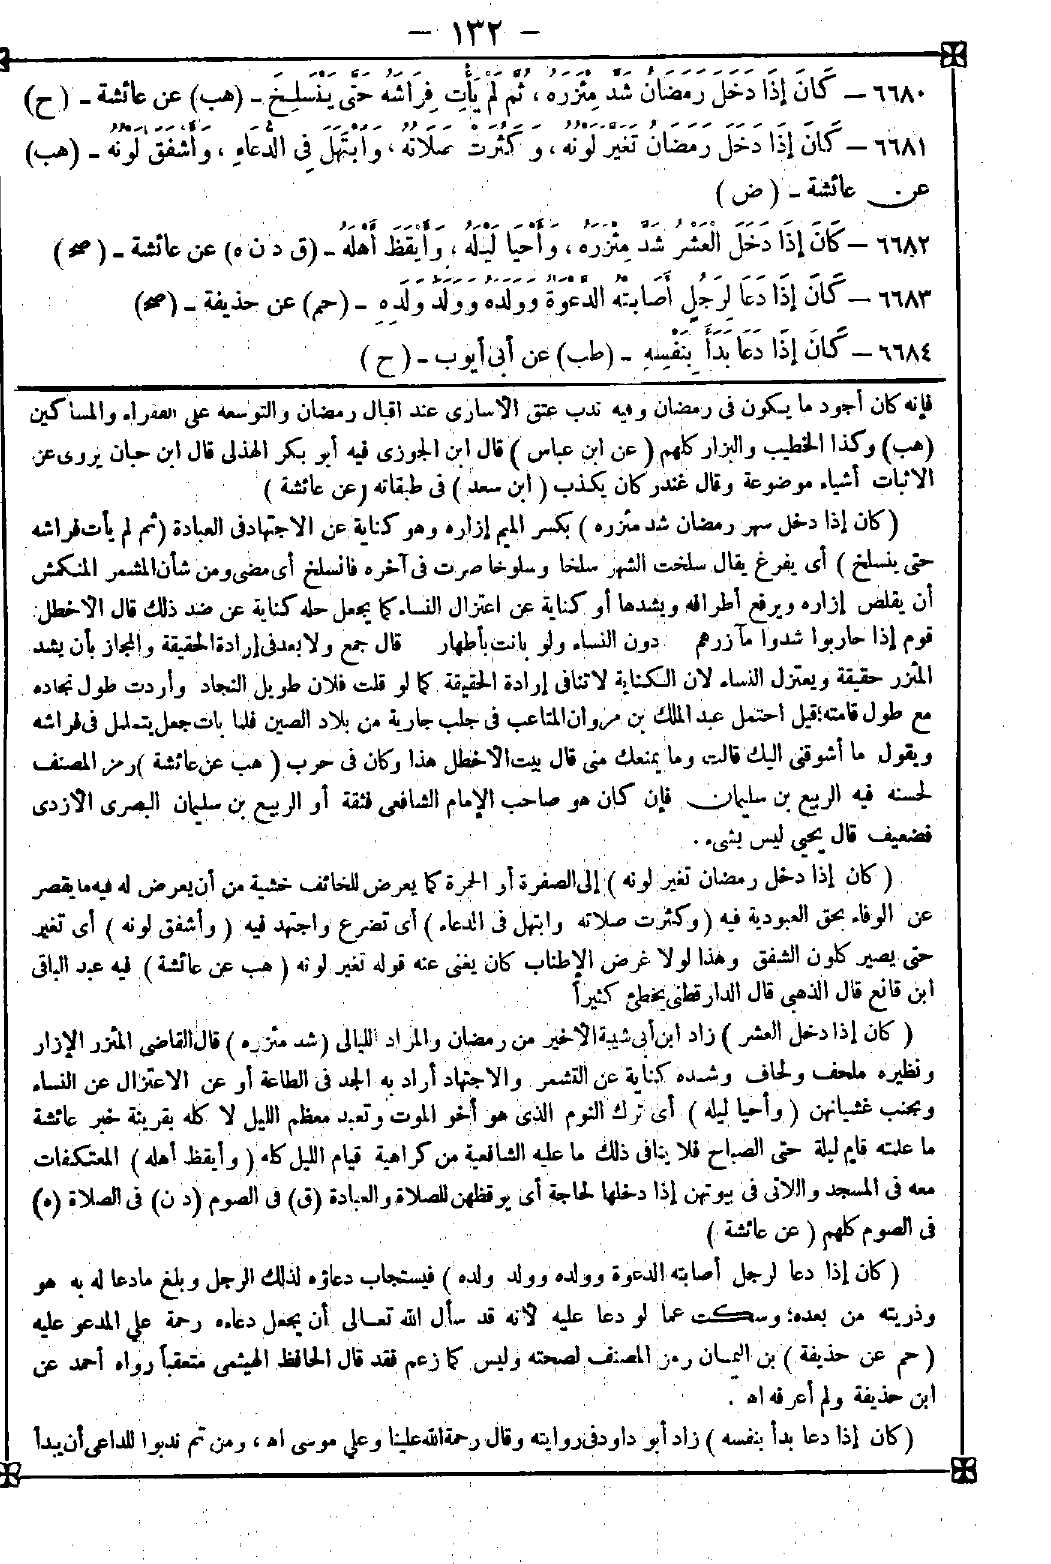 – ١٣٢ –
٦٦٨٠ – كَانَ إِذَا دَخَلَ رَمَضَانُ شَدَّ مِئْزَرَهُ ، ثُمَّ لَمْ يَأْتِ فِرَاشَهُ حَتَّى يَنْسَلِخَ – (هب) عن عائشة – (ح)
٦٦٨١ – كَانَ إِذَا دَخَلَ رَمَضَانُ تَغَيَّرَ لَوْنُهُ ، وَكَثُرَتْ صَلَاتُهُ ، وَابْتَهَلَ فِي الدُّعَاءِ ، وَأَشْفَقَ لَوْنُهُ – (هب)
عن عائشة – (ض)
٦٦٨٢ – كَانَ إِذَا دَخَلَ الْعَشْرُ شَدَّ مِئْزَرَهُ ، وَأَحْيَا لَيْلَهُ ، وَأَيْقَظَ أَهْلَهُ – (ق د ن ه) عن عائشة – (صح)
٦٦٨٣ – كَانَ إِذَا دَعَا لِرَجُلٍ أَصَابَتْهُ الدَّعْوَةُ وَوَلَدَهُ وَوَلَدَ وَلَدِهِ – (حم) عن حذيفة – (صح)
٦٦٨٤ – كَانَ إِذَا دَعَا بَدَأَ بِنَفْسِهِ – (طب) عن أبي أيوب – (ح)
فإنه كان أجود ما يكون فى رمضان وفيه ندب عتق الأسارى عند اقبال رمضان والتوسعه على الفقراء والمساكين
(هب) وكذا الخطيب والبزار كلهم (عن ابن عباس) قال ابن الجوزى فيه أبو بكر الهذلى قال ابن حبان يروى عن
الاثبات أشياء موضوعة وقال غندر كان يكذب (ابن سعد) فى طبقاته (عن عائشة)
(كان إذا دخل شهر رمضان شد مئزره) بكسر الميم إزاره وهو كناية عن الاجتهاد فى العبادة (ثم لم يأت فراشه
حتى ينسلخ) أى يفرغ يقال سلخت الشهر سلخا وسلوخا صرت فى آخره فانسلخ أى مضى ومن شأن المشمر المنكمش
أن يقلص إزاره ويرفع أطرافه ويشدها أو كناية عن اعتزال النساء كما يجعل حله كناية عن ضد ذلك قال الاخطل:
قوم إذا حاربوا شدوا مآزرهم دون النساء ولو بانت بأطهار قال جمع ولا بعد فى إرادة الحقيقة والمجاز بأن يشد
المئزر حقيقة ويعتزل النساء لان الكناية لا تنافى إرادة الحقيقة كما لو قلت فلان طويل النجاد وأردت طول نجاده
مع طول قامته؛ قيل احتمل عبد الملك بن مروان المتاعب فى جلب جارية من بلاد الصين فلما بات جعل يتململ فى فراشه
ويقول ما أشوقنى اليك قالت وما يمنعك منى قال بيت الاخطل هذا وكان فى حرب (هب عن عائشة) رمز المصنف
لحسنه فيه الربيع بن سليمان فإن كان هو صاحب الإمام الشافعى فثقة أو الربيع بن سليمان البصرى الازدى
فضعيف قال يحيى ليس بشىء.
(كان إذا دخل رمضان تغير لونه) إلى الصفرة أو الحمرة كما يعرض للخائف خشية من أن يعرض له فيه ما يقصر
عن الوفاء بحق العبودية فيه (وكثرت صلاته وابتهل فى الدعاء) أى تضرع واجتهد فيه (وأشفق لونه) أى تغير
حتى يصير كلون الشفق وهذا لولا غرض الإطناب كان يغنى عنه قوله تغير لونه (هب عن عائشة) فيه عبد الباقى
ابن قانع قال الذهبى قال الدارقطنى يخطئ كثيراً
(كان إذا دخل العشر) زاد ابن أبى شيبة الأخير من رمضان والمراد الليالى (شد مئزره) قال القاضى المئزر الإزار
ونظيره ملحف ولحاف وشده كناية عن التشمر والاجتهاد أراد به الجد فى الطاعة أو عن الاعتزال عن النساء
وبجنب غشيانهن (وأحيا ليله) أى ترك النوم الذى هو أخو الموت وتعبد معظم الليل لا كله بقرينة خبر عائشة
ما علمته قام ليلة حتى الصباح فلا ينافى ذلك ما عليه الشافعية من كراهية قيام الليل كله (وأيقظ أهله) المعتكفات
معه فى المسجد واللاتى فى بيوتهن إذا دخلها لحاجة أى يوقظهن للصلاة والعبادة (ق) فى الصوم (د ن) فى الصلاة (ه)
فى الصوم كلهم (عن عائشة)
(كان إذا دعا لرجل أصابته الدعوة وولده وولد ولده) فيستجاب دعاؤه لذلك الرجل وبلغ مادعا له به هو
وذريته من بعده؛ وسكت عما لو دعا عليه لأنه قد سأل الله تعالى أن يجعل دعاءه رحمة على المدعو عليه
(حم عن حذيفة) بن اليمان رمز المصنف لصحته وليس كما زعم فقد قال الحافظ الهيثمى متعقباً رواه أحمد عن
ابن حذيفة ولم أعرفه اه .
(كان إذا دعا بدأ بنفسه) زاد أبو داود فى روايته وقال رحمة الله علينا وعلى موسى اه ، ومن ثم ندبوا للداعى أن يبدأ